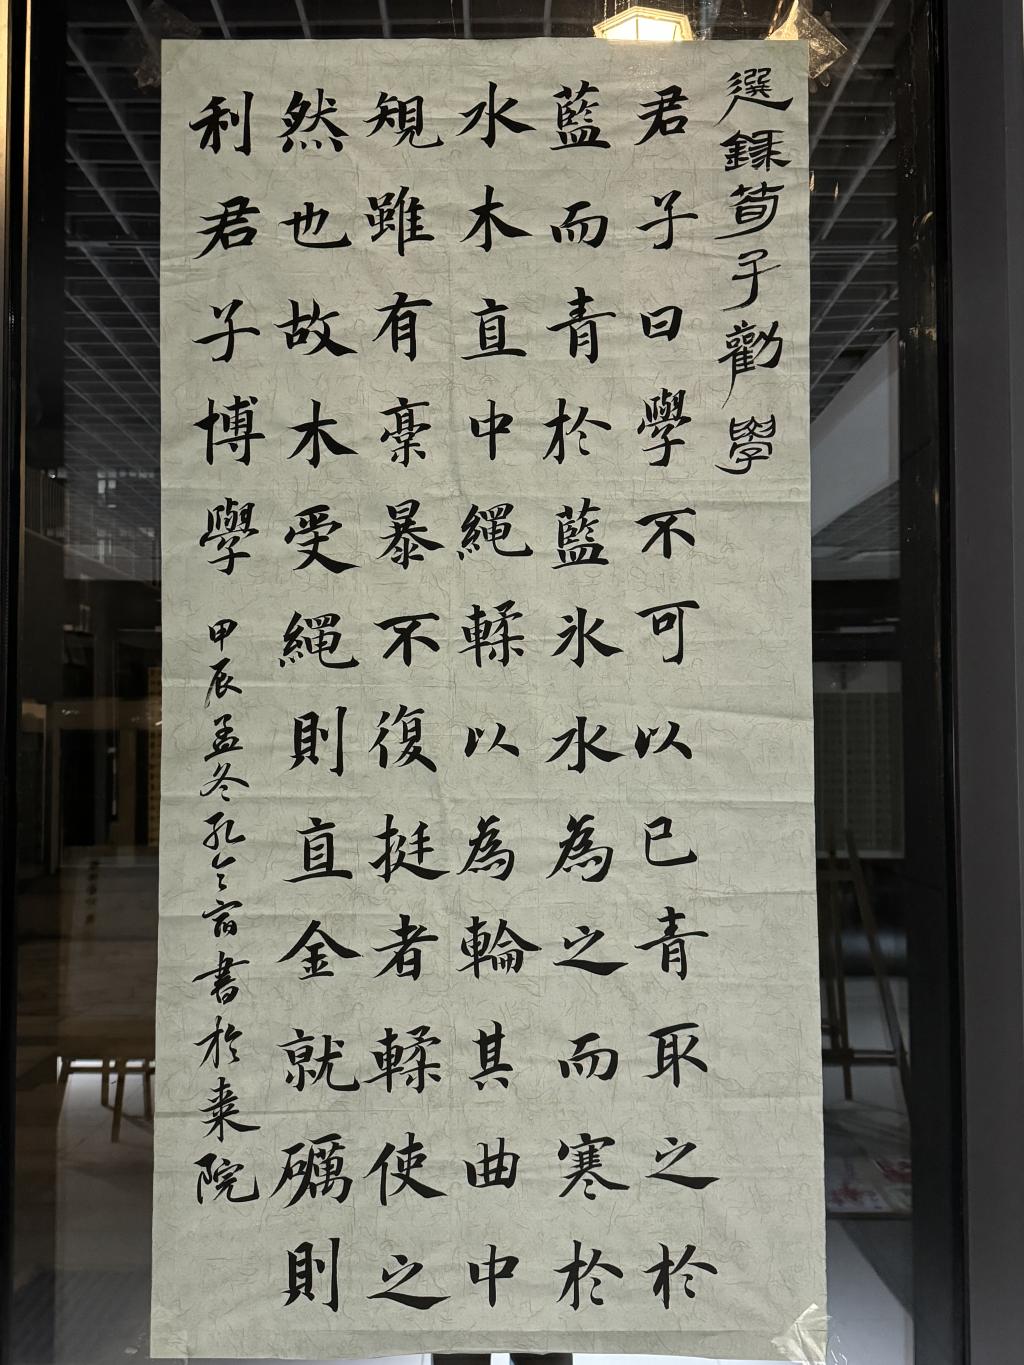 選録荀子勸學
君子曰學不可以已青取之於
藍而青於藍氷水為之而寒於
水木直中繩輮以為輪其曲中
規雖有槀暴不復挺者輮使之
然也故木受繩則直金就礪則
利君子博學
甲辰孟冬孔令宿書於桒院